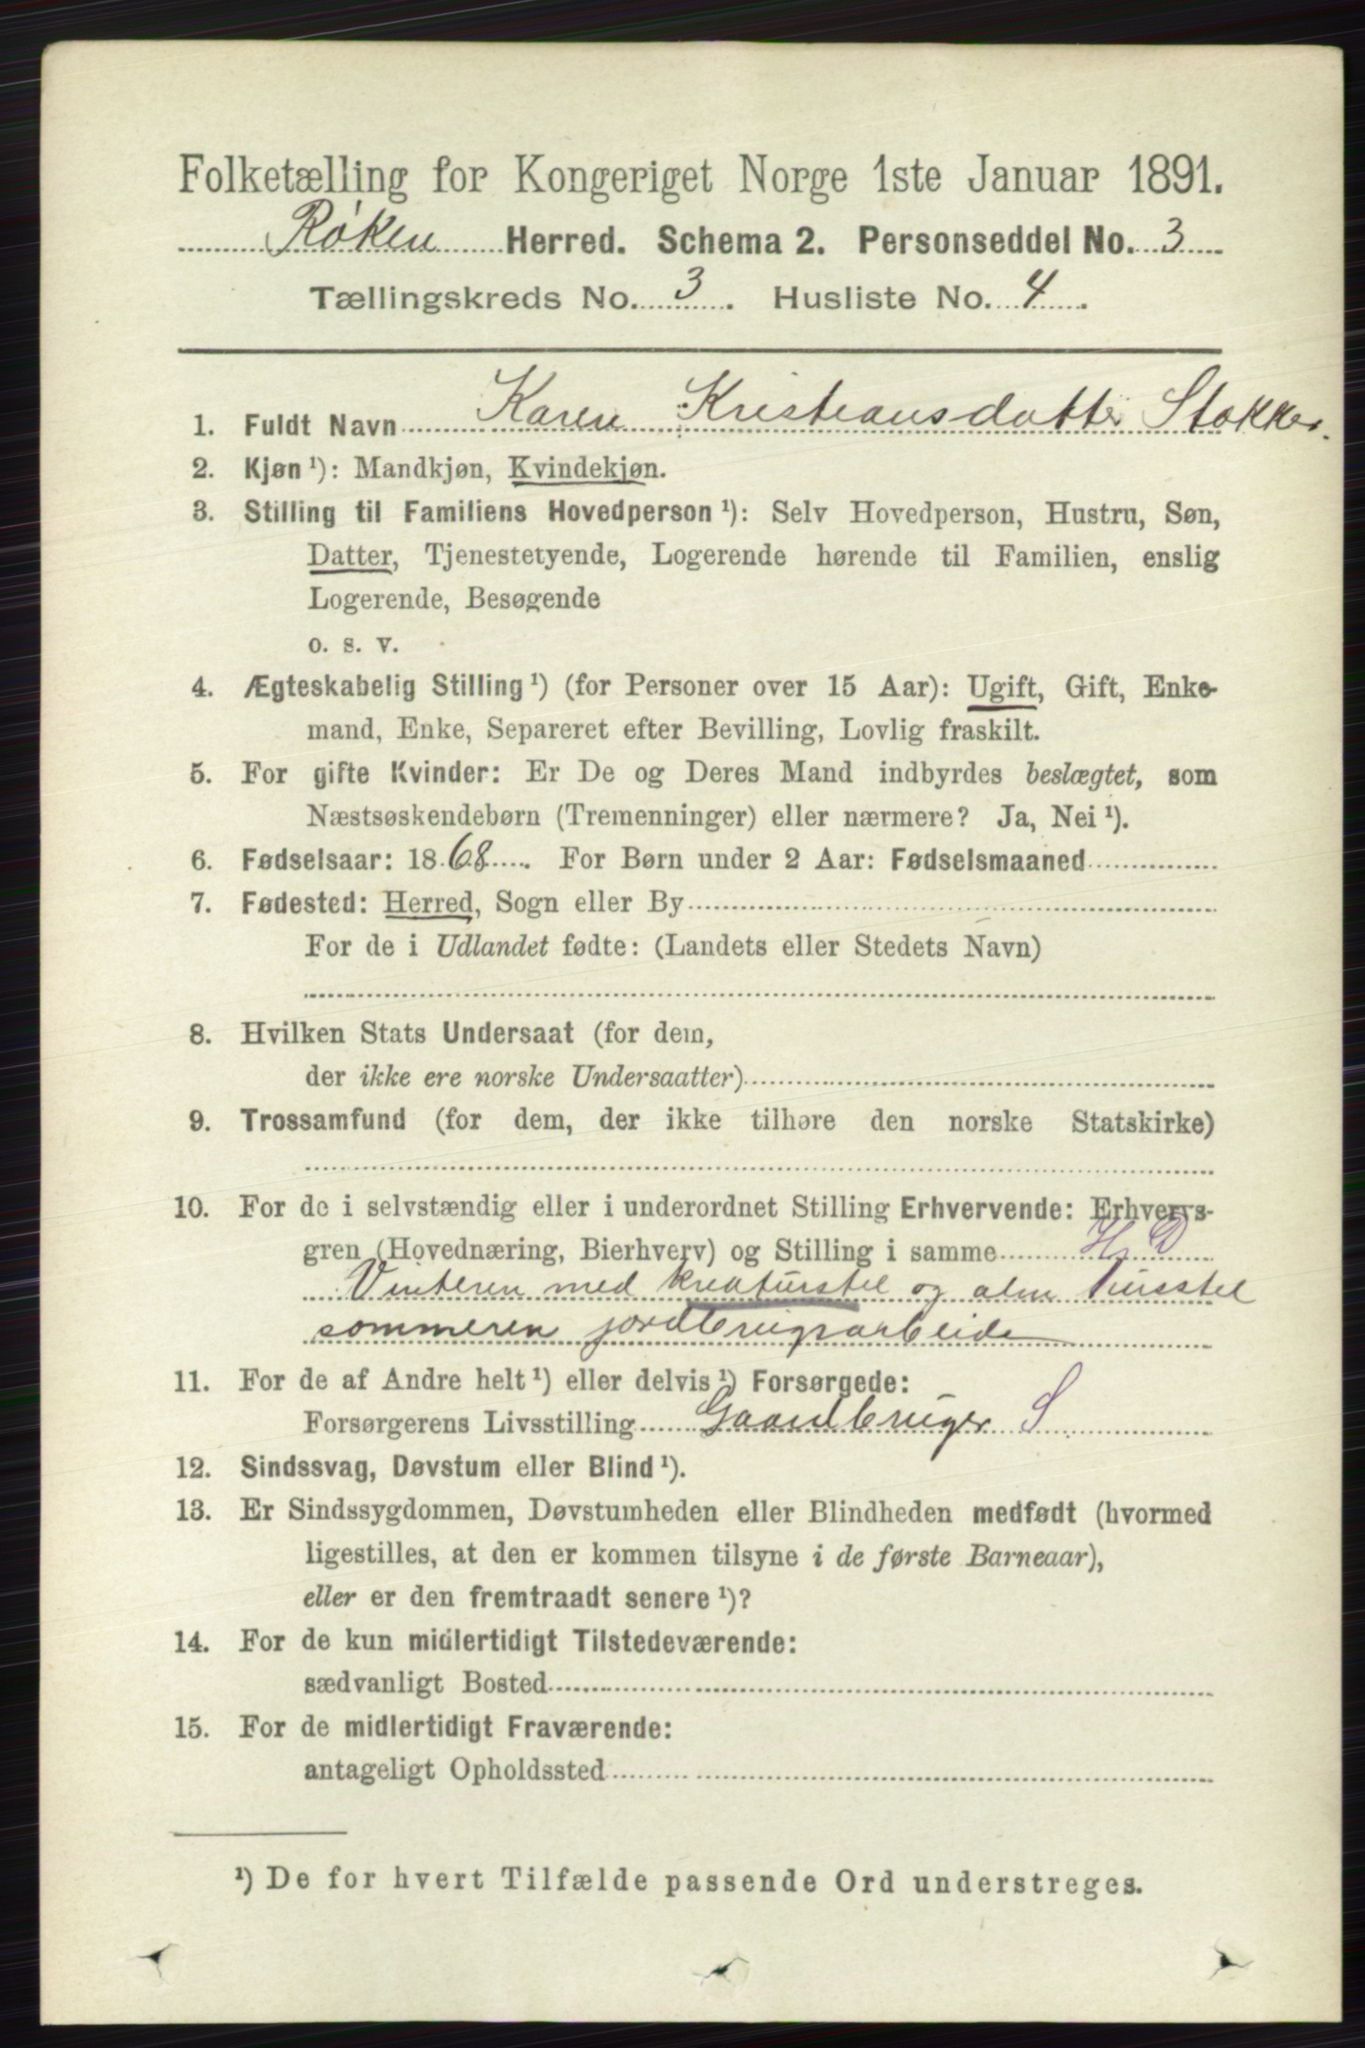 Folketælling for Kongeriget Norge 1ste Januar 1891.
Røken Herred. Schema 2. Personseddel No. 3
Tællingskreds No. 3. Husliste No. 4.
1. Fuldt Navn Karen Kristiansdatter Stokker.
2. Kjøn ¹): Mandkjøn, Kvindekjøn.
3. Stilling til Familiens Hovedperson ¹): Selv Hovedperson, Hustru, Søn,
Datter, Tjenestetyende, Logerende hørende til Familien, enslig
Logerende, Besøgende
o. s. v.
4. Ægteskabelig Stilling ¹) (for Personer over 15 Aar): Ugift, Gift, Enke-
mand, Enke, Separeret efter Bevilling, Lovlig fraskilt.
5. For gifte Kvinder: Er De og Deres Mand indbyrdes beslægtet, som
Næstsøskendebørn (Tremenninger) eller nærmere? Ja, Nei ¹).
6. Fødselsaar: 1868. For Børn under 2 Aar: Fødselsmaaned
7. Fødested: Herred, Sogn eller By
For de i Udlandet fødte: (Landets eller Stedets Navn)
8. Hvilken Stats Undersaat (for dem,
der ikke ere norske Undersaatter)
9. Trossamfund (for dem, der ikke tilhøre den norske Statskirke)
10. For de i selvstændig eller i underordnet Stilling Erhvervende: Erhvervs-
gren (Hovednæring, Bierhverv) og Stilling i samme H, D
Vinteren med kreaturstel og alm husstel
sommeren jordbrugsarbeide
11. For de af Andre helt ¹) eller delvis ¹) Forsørgede:
Forsørgerens Livsstilling Gaardbruger S
12. Sindssvag, Døvstum eller Blind ¹).
13. Er Sindssygdommen, Døvstumheden eller Blindheden medfødt (hvormed
ligestilles, at den er kommen tilsyne i de første Barneaar),
eller er den fremtraadt senere ¹)?
14. For de kun midlertidigt Tilstedeværende:
sædvanligt Bosted
15. For de midlertidigt Fraværende:
antageligt Opholdssted
¹) De for hvert Tilfælde passende Ord understreges.